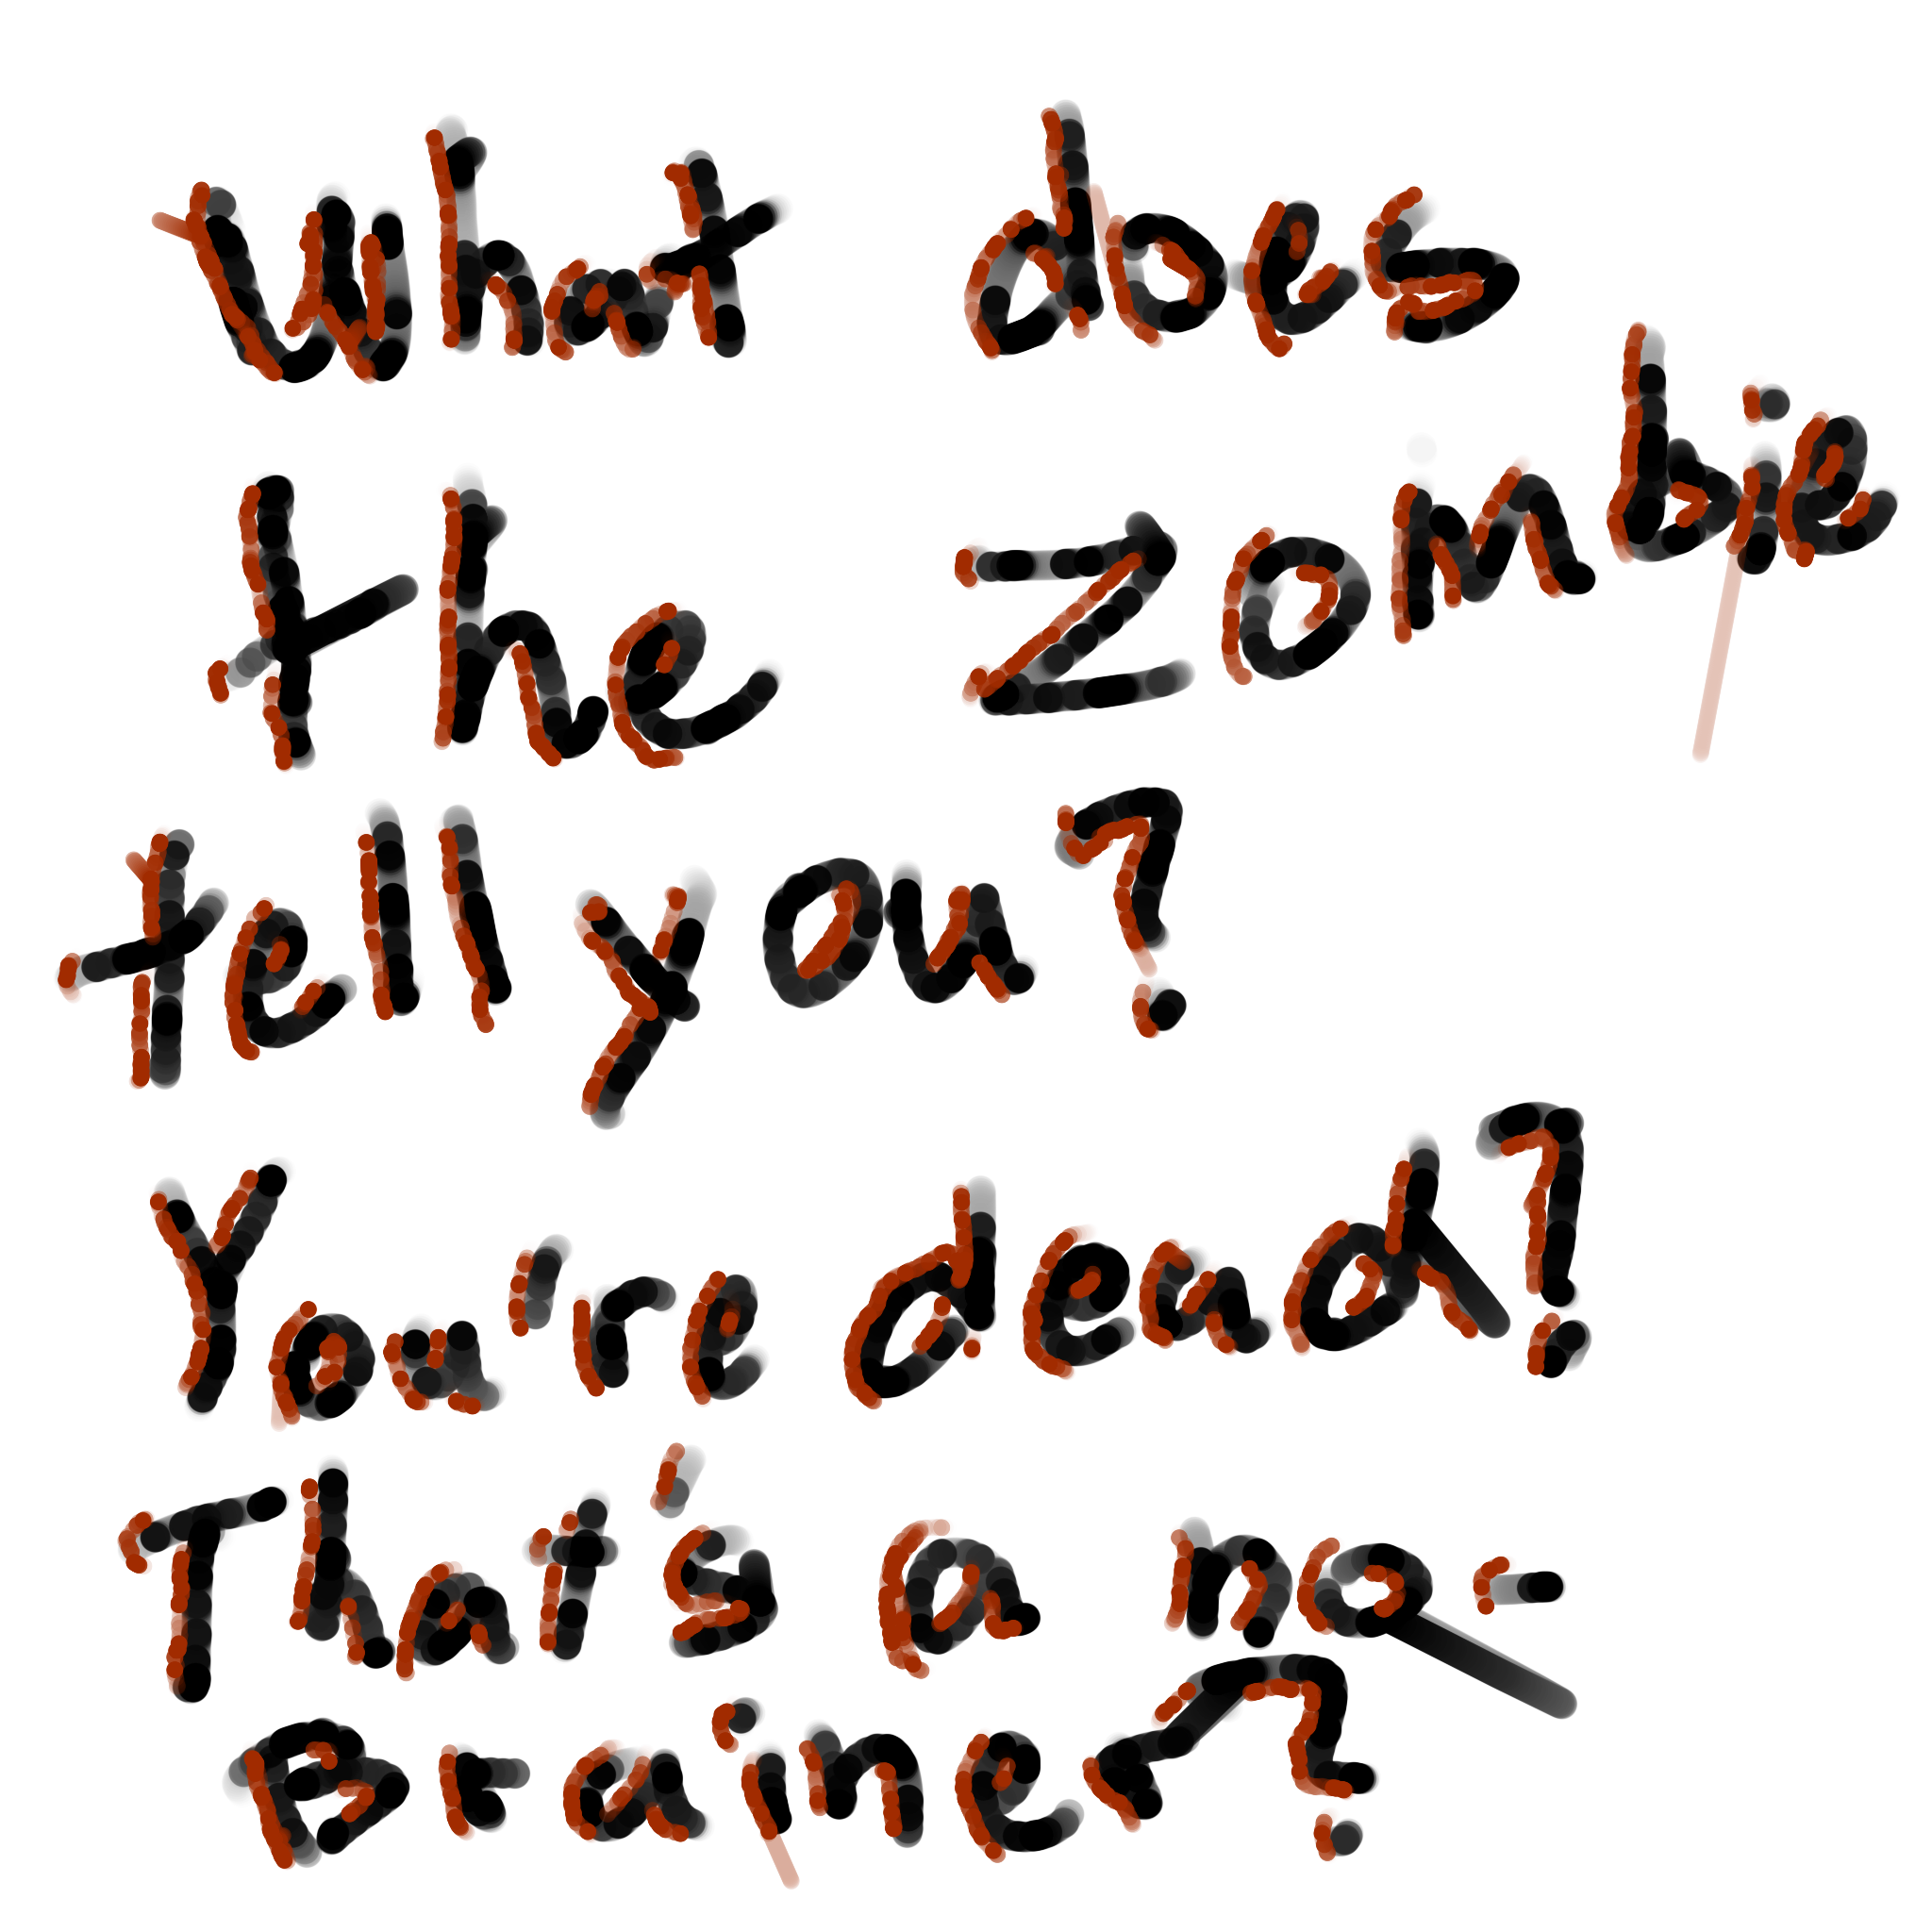 What does
the zombie
tell you?
You're dead?
That's a no-
Brainer?